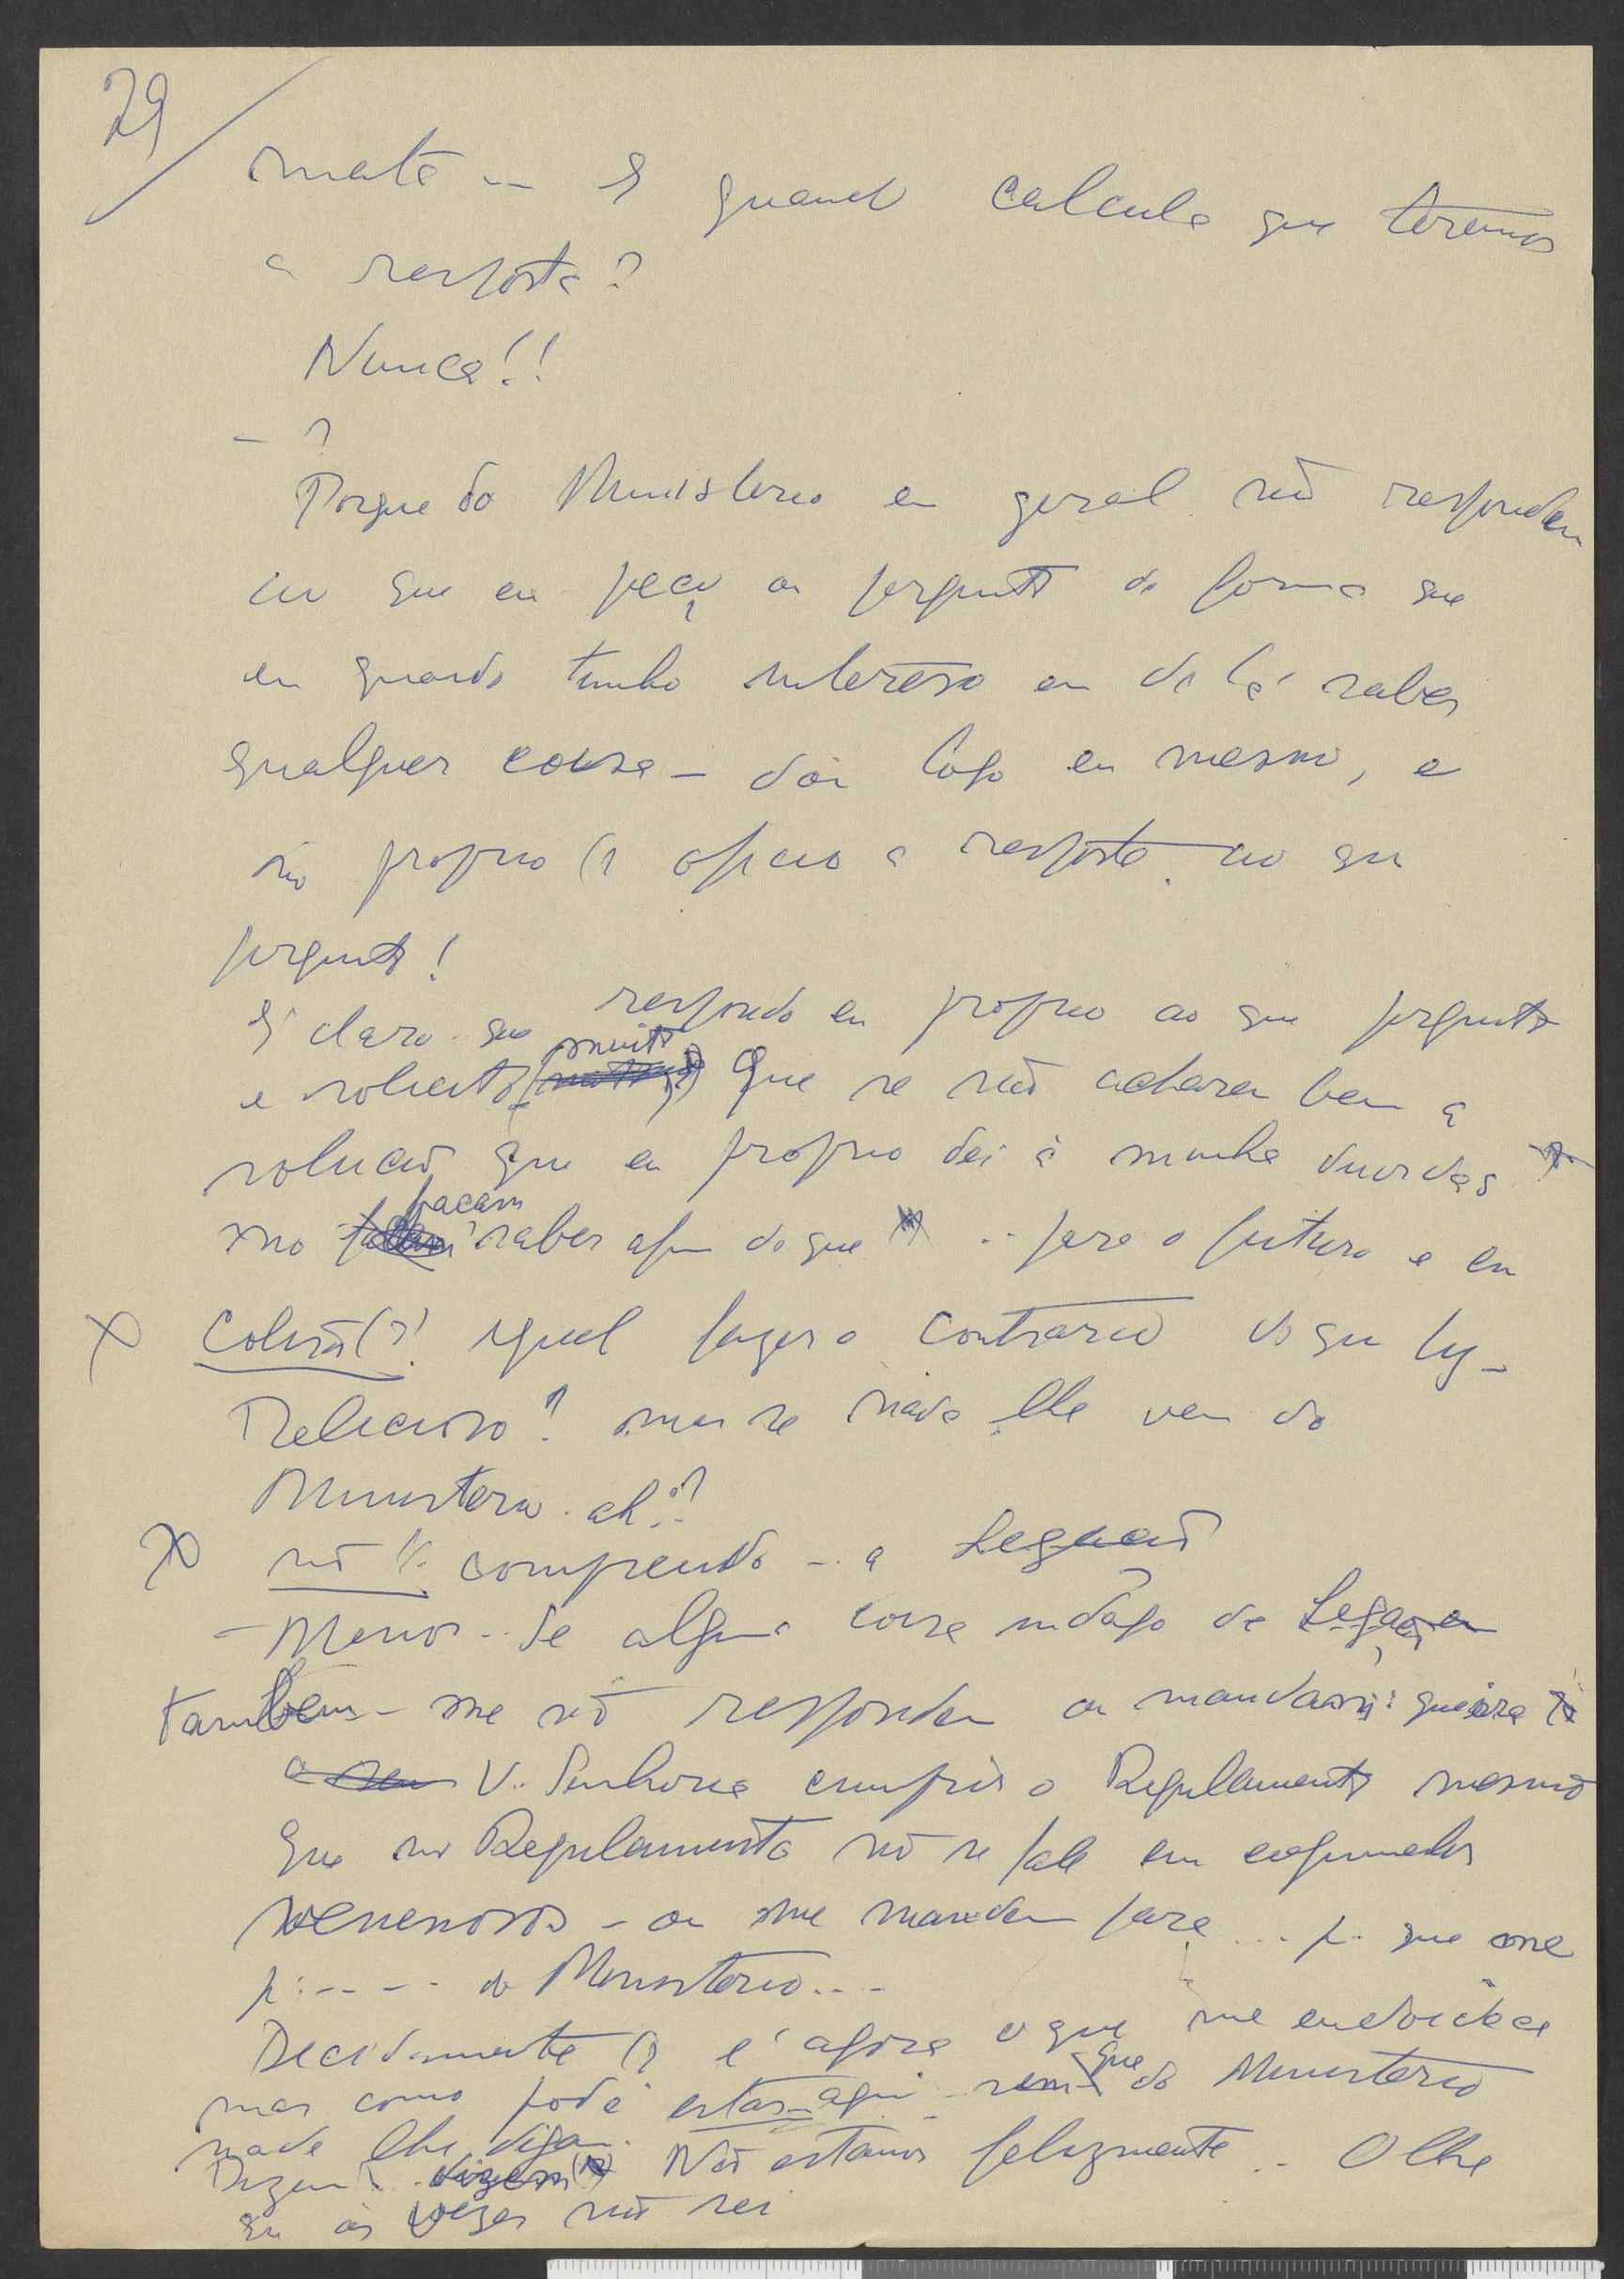 29
mate -- E quando calcula que teremos
a resposta?
Nunca!!
- ?
Porque do Ministerio em geral não respondem
ao que eu peço ou pergunto de forma que
eu quando tenho interesse em de lá saber
qualquer cousa - dou logo eu mesmo, e
no proprio (?) oficio a resposta ao que
pergunto!
E' claro que respondo eu proprio ao que pergunto
e solicito muito Que se não acharem bem a
solução que eu proprio dei á minha duvidas
mo façam saber afim do que .. para o futuro e em
X igual fazer o contrario do que fiz -
Delicioso! mas se nada lhe vem do
Ministerio ah!?
X não compreendo -- a Legação
- Menos -- Se alguma cousa indago da Legação
tambem - me não respondem ou mandam: queira
V. Senhoria cumprir o Regulamento mesmo
que no Regulamento não se fale em cogumelos
venenosos - ou me mandam para ... p. que me
p: - - - - do Ministerio...
Decidamente (?) é agora o que me endoidece
mas como pode estar aqui sem que do Ministerio
nada lhe digam.
Dizem Não estamos felizmente .. Olhe
eu ás vezes não sei